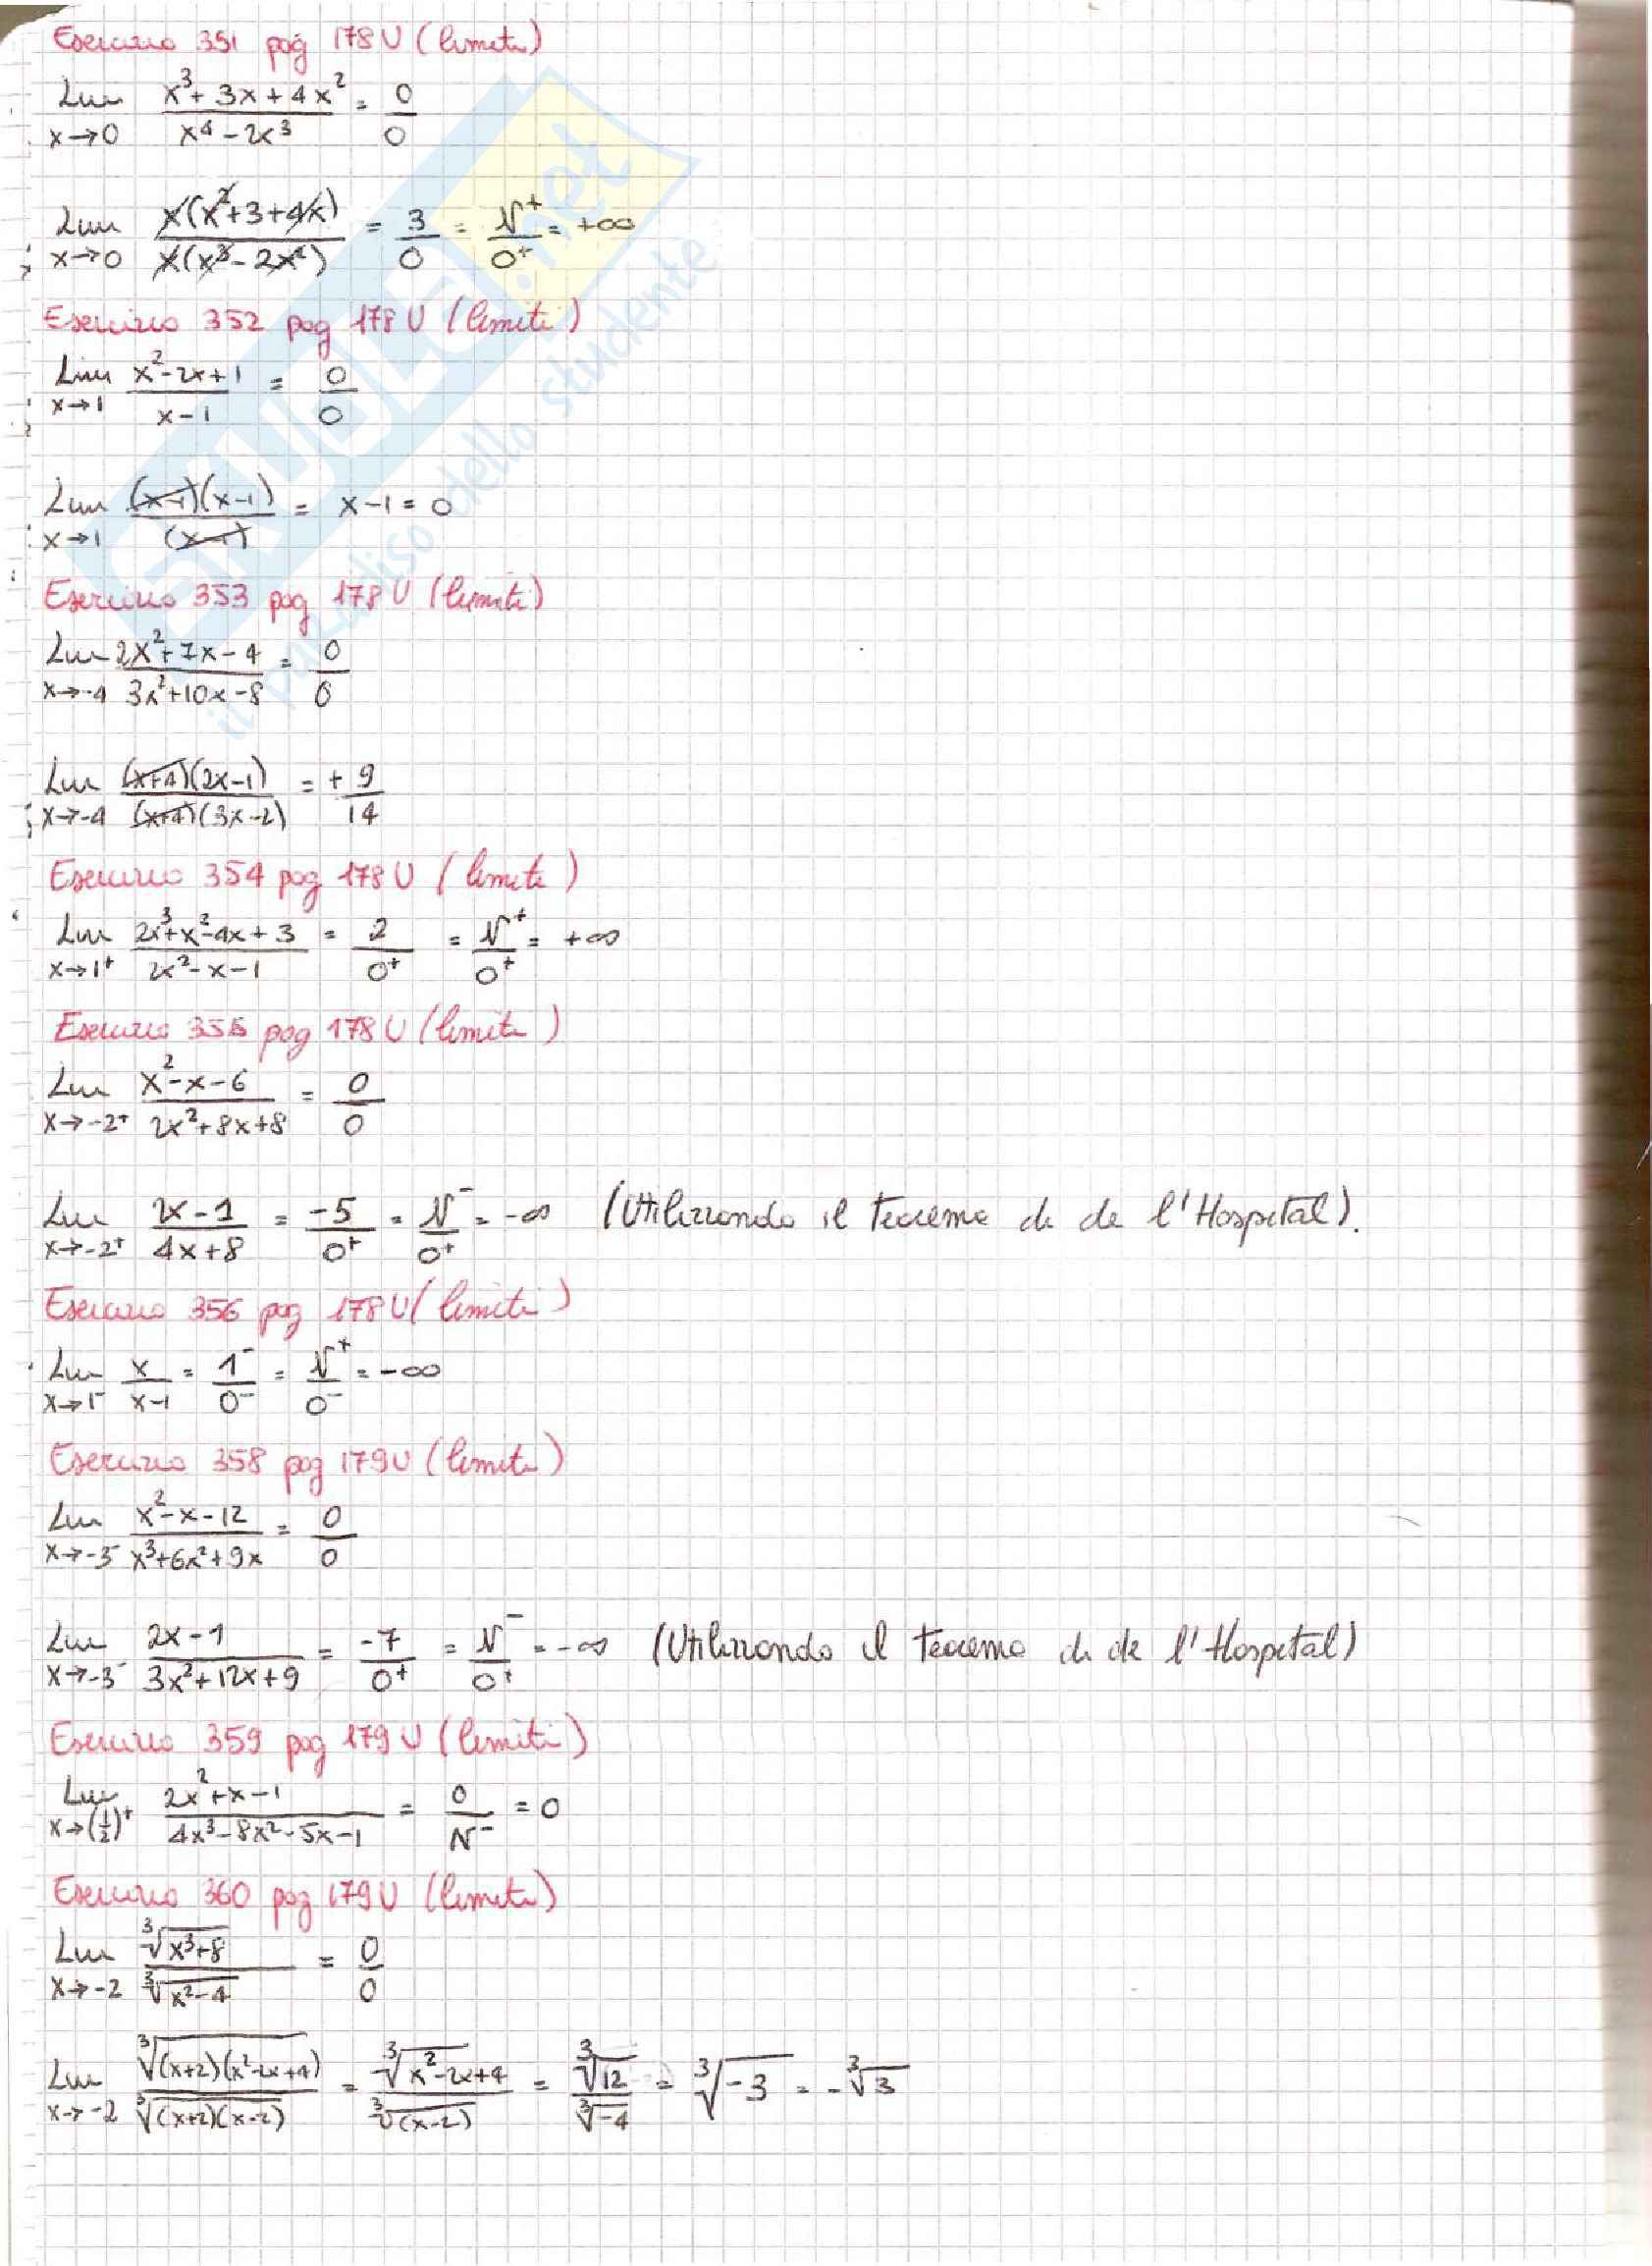 Esercizio 351 pag 178 U (limiti)
Lim x→0 (x³+3x+4x²)/(x⁴-2x³) = 0/0
Lim x→0 x(x²+3+4x)/x(x³-2x²) = 3/0 = N⁺/0⁺ = +∞
Esercizio 352 pag 178 U (limiti)
Lim x→1 (x²-2x+1)/(x-1) = 0/0
Lim x→1 (x-1)(x-1)/(x-1) = x-1 = 0
Esercizio 353 pag 178 U (limiti)
Lim x→-4 (2x²+7x-4)/(3x²+10x-8) = 0/0
Lim x→-4 (x+4)(2x-1)/(x+4)(3x-2) = + 9/14
Esercizio 354 pag 178 U (limiti)
Lim x→1⁺ (2x³+x²-4x+3)/(2x²-x-1) = 2/0⁺ = N⁺/0⁺ = +∞
Esercizio 355 pag 178 U (limiti)
Lim x→-2⁺ (x²-x-6)/(2x²+8x+8) = 0/0
Lim x→-2⁺ (2x-1)/(4x+8) = -5/0⁺ = N⁻/0⁺ = -∞ (Utilizzando il teorema di de l'Hospital).
Esercizio 356 pag 178 U (limiti)
Lim x→1⁻ x/(x-1) = 1⁻/0⁻ = N⁺/0⁻ = -∞
Esercizio 358 pag 179 U (limiti)
Lim x→-3⁻ (x²-x-12)/(x³+6x²+9x) = 0/0
Lim x→-3⁻ (2x-1)/(3x²+12x+9) = -7/0⁺ = N⁻/0⁺ = -∞ (Utilizzando il teorema di de l'Hospital)
Esercizio 359 pag 179 U (limiti)
Lim x→(1/2)⁺ (2x²+x-1)/(4x³-8x²-5x-1) = 0/N⁻ = 0
Esercizio 360 pag 179 U (limiti)
Lim x→-2 ∛(x³+8)/∛(x²-4) = 0/0
Lim x→-2 ∛((x+2)(x²-2x+4))/∛((x+2)(x-2)) = ∛(x²-2x+4)/∛(x-2) = ∛12/∛-4 = ∛-3 = -∛3
SKUOLA.net
il paradiso dello studente